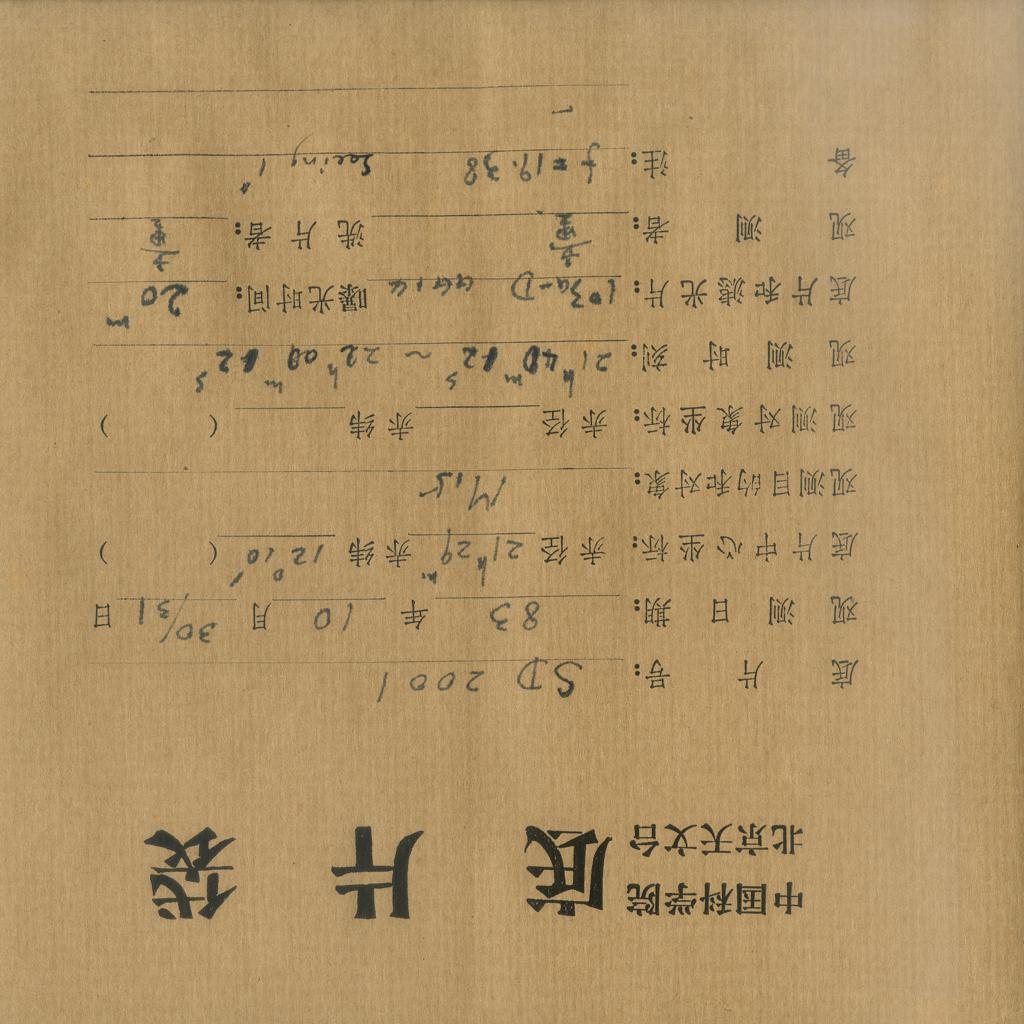 中国科学院
北京天文台
底片袋
底片号: SD 2001
观测日期: 83 年 10 月 30/31 日
底片中心坐标: 赤径 21ʰ29ᵐ 赤纬 12°10′ ( )
观测目的和对象: M15
观测对象坐标: 赤径 赤纬 ( )
观测时刻: 21ʰ40ᵐ12ˢ ~ 22ʰ00ᵐ12ˢ
底片和滤光片: 103a-D 曝光时间: 20ᵐ
观测者: 洗片者:
备注: f=19.38 Seeing 1"